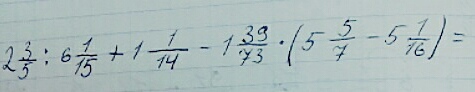 2 3/5 : 6 1/15 + 1 1/14 - 1 39/73 · (5 5/7 - 5 1/16) =